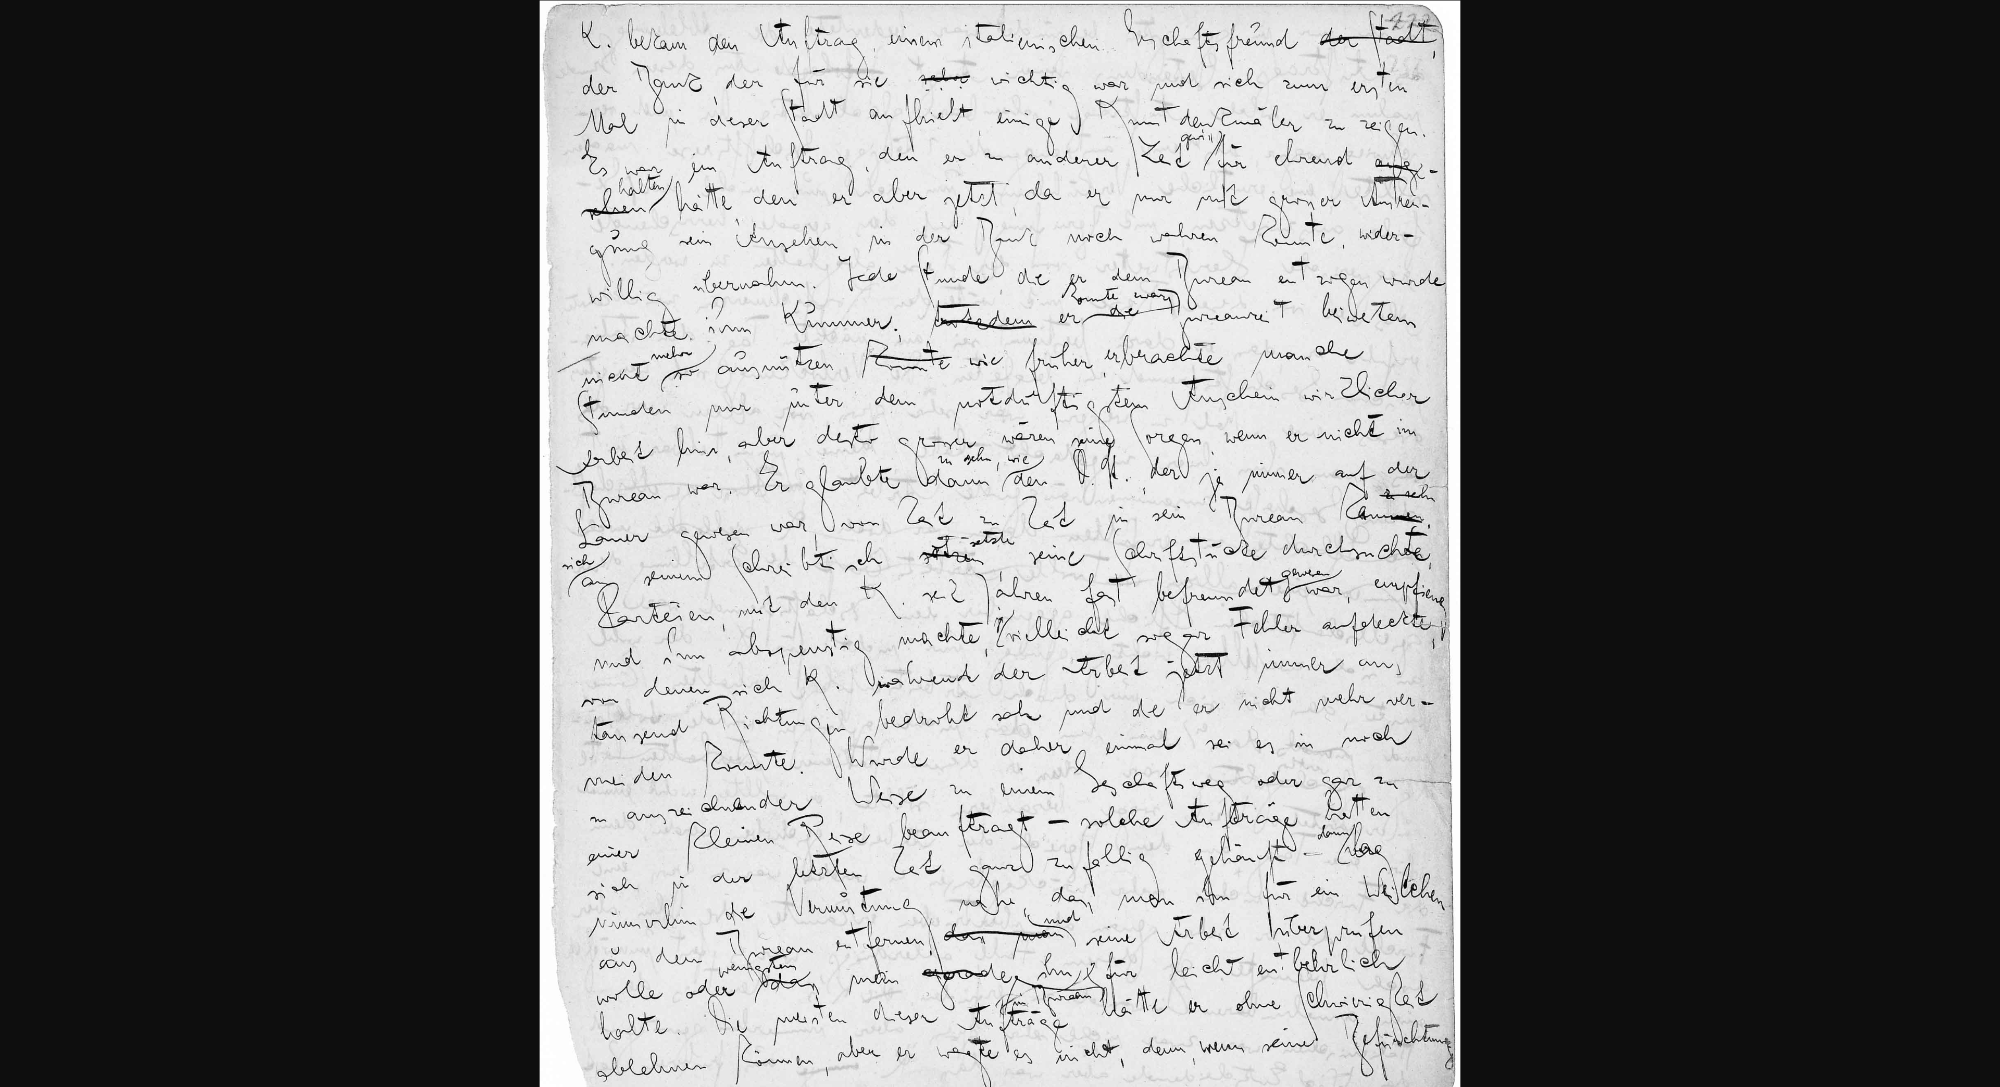 K. bekam den Auftrag, einem italienischen Geschäftsfreund der Stadt,
der Bank, der für sie sehr wichtig war und sich zum ersten
Mal in dieser Stadt aufhielt, einige Kunstdenkmäler zu zeigen.
Es war ein Auftrag, den er zu anderer Zeit gewiss für ehrend ange-
sehen halten hätte, den er aber jetzt, da er nur mit grosser Anstren-
gung sein Ansehen in der Bank noch wahren konnte, wider-
willig übernahm. Jede Stunde, die er dem Bureau entzogen wurde
machte ihm Kummer; trotzdem er die konnte zwar Bureauzeit beiweitem
nicht so mehr ausnützen konnte wie früher, er brachte manche
Stunden nur unter dem notdürftigsten Anschein wirklicher
Arbeit hin, aber desto grösser waren seine Sorgen, wenn er nicht im
Bureau war. Er glaubte dann zu sehn, wie den D.St., der ja immer auf der
Lauer gewesen war, von Zeit zu Zeit in sein Bureau kommen, zu sehn
sich an seinen Schreibtisch setzen setzte, seine Schriftstücke durchsuchte,
Parteien, mit den K. seit Jahren fast befreundet gewesen war, empfieng
und ihm abspenstig machte, ja vielleicht sogar Fehler aufdeckte,
von denen sich K. während der Arbeit jetzt immer aus
tausend Richtungen bedroht sah und die er nicht mehr ver-
meiden konnte. Wurde er daher einmal sei es in noch
so auszeichnender Weise zu einem Geschäftsweg oder gar zu
einer kleinen Reise beauftragt – solche Aufträge hatten
sich in der letzten Zeit ganz zufällig gehäuft – dann lag
immerhin die Vermutung nahe, dass man ihn für ein Weilchen
aus dem Bureau entfernen, dass man und seine Arbeit überprüfen
wolle oder dass wenigstens man gerade ihn im Bureau für leicht entbehrlich
halte. Die meisten dieser Aufträge hätte er ohne Schwierigkeit
ablehnen können, aber er wagte es nicht, denn, wenn seine Befürchtung